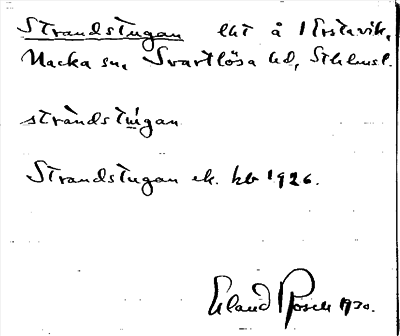 Strandstugan lht å Erstavik,
Nacka sn, Svartlösa hd, Sthlmsl.
stràndstúgan
Strandstugan ek. kb 1926.
Erland Rosell 1930.